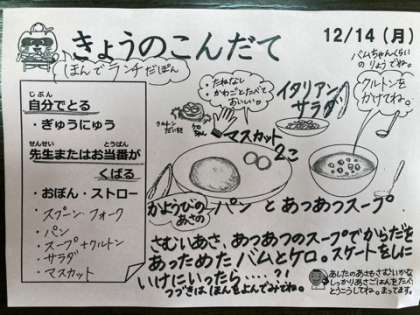 きょうのこんだて
12/14(月)
ほんでランチだぽん
バムちゃんくらい
のりょうでね。
自分でとる
じぶん
・ぎゅうにゅう
先生またはお当番が
せんせい
とうばん
くばる
・おぼん・ストロー
・スプーン・フォーク
・パン
・スープ+クルトン
・サラダ
・マスカット
・たねなし
・かわごとたべて
おいしい。
イタリアン
サラダ
クルトンを
かけてね。
マスカット
2こ
かようびの
あさの
パンとあつあつスープ
さむいあさ、あつあつのスープでからだを
あっためたバムとケロ。スケートをしに
いけにいったら‥‥?!
つづきはほんをよんでみてね。
あしたのあさもさむいかな
しっかりあさごはんをたべて
とうこうしてね。まってます。